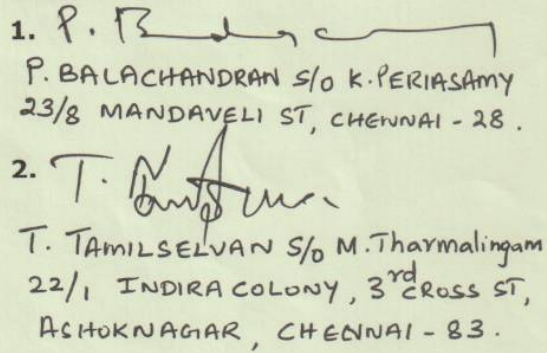 1. P. B
P. BALACHANDRAN S/o K. PERIASAMY
23/8 MANDAVELI ST, CHENNAI - 28.
2. T.
T. TAMILSELVAN S/o M. Tharmalingam
22/1 INDIRA COLONY, 3rd CROSS ST,
ASHOKNAGAR, CHENNAI - 83.